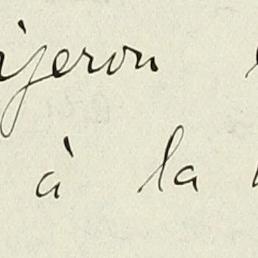 ijeron
à la